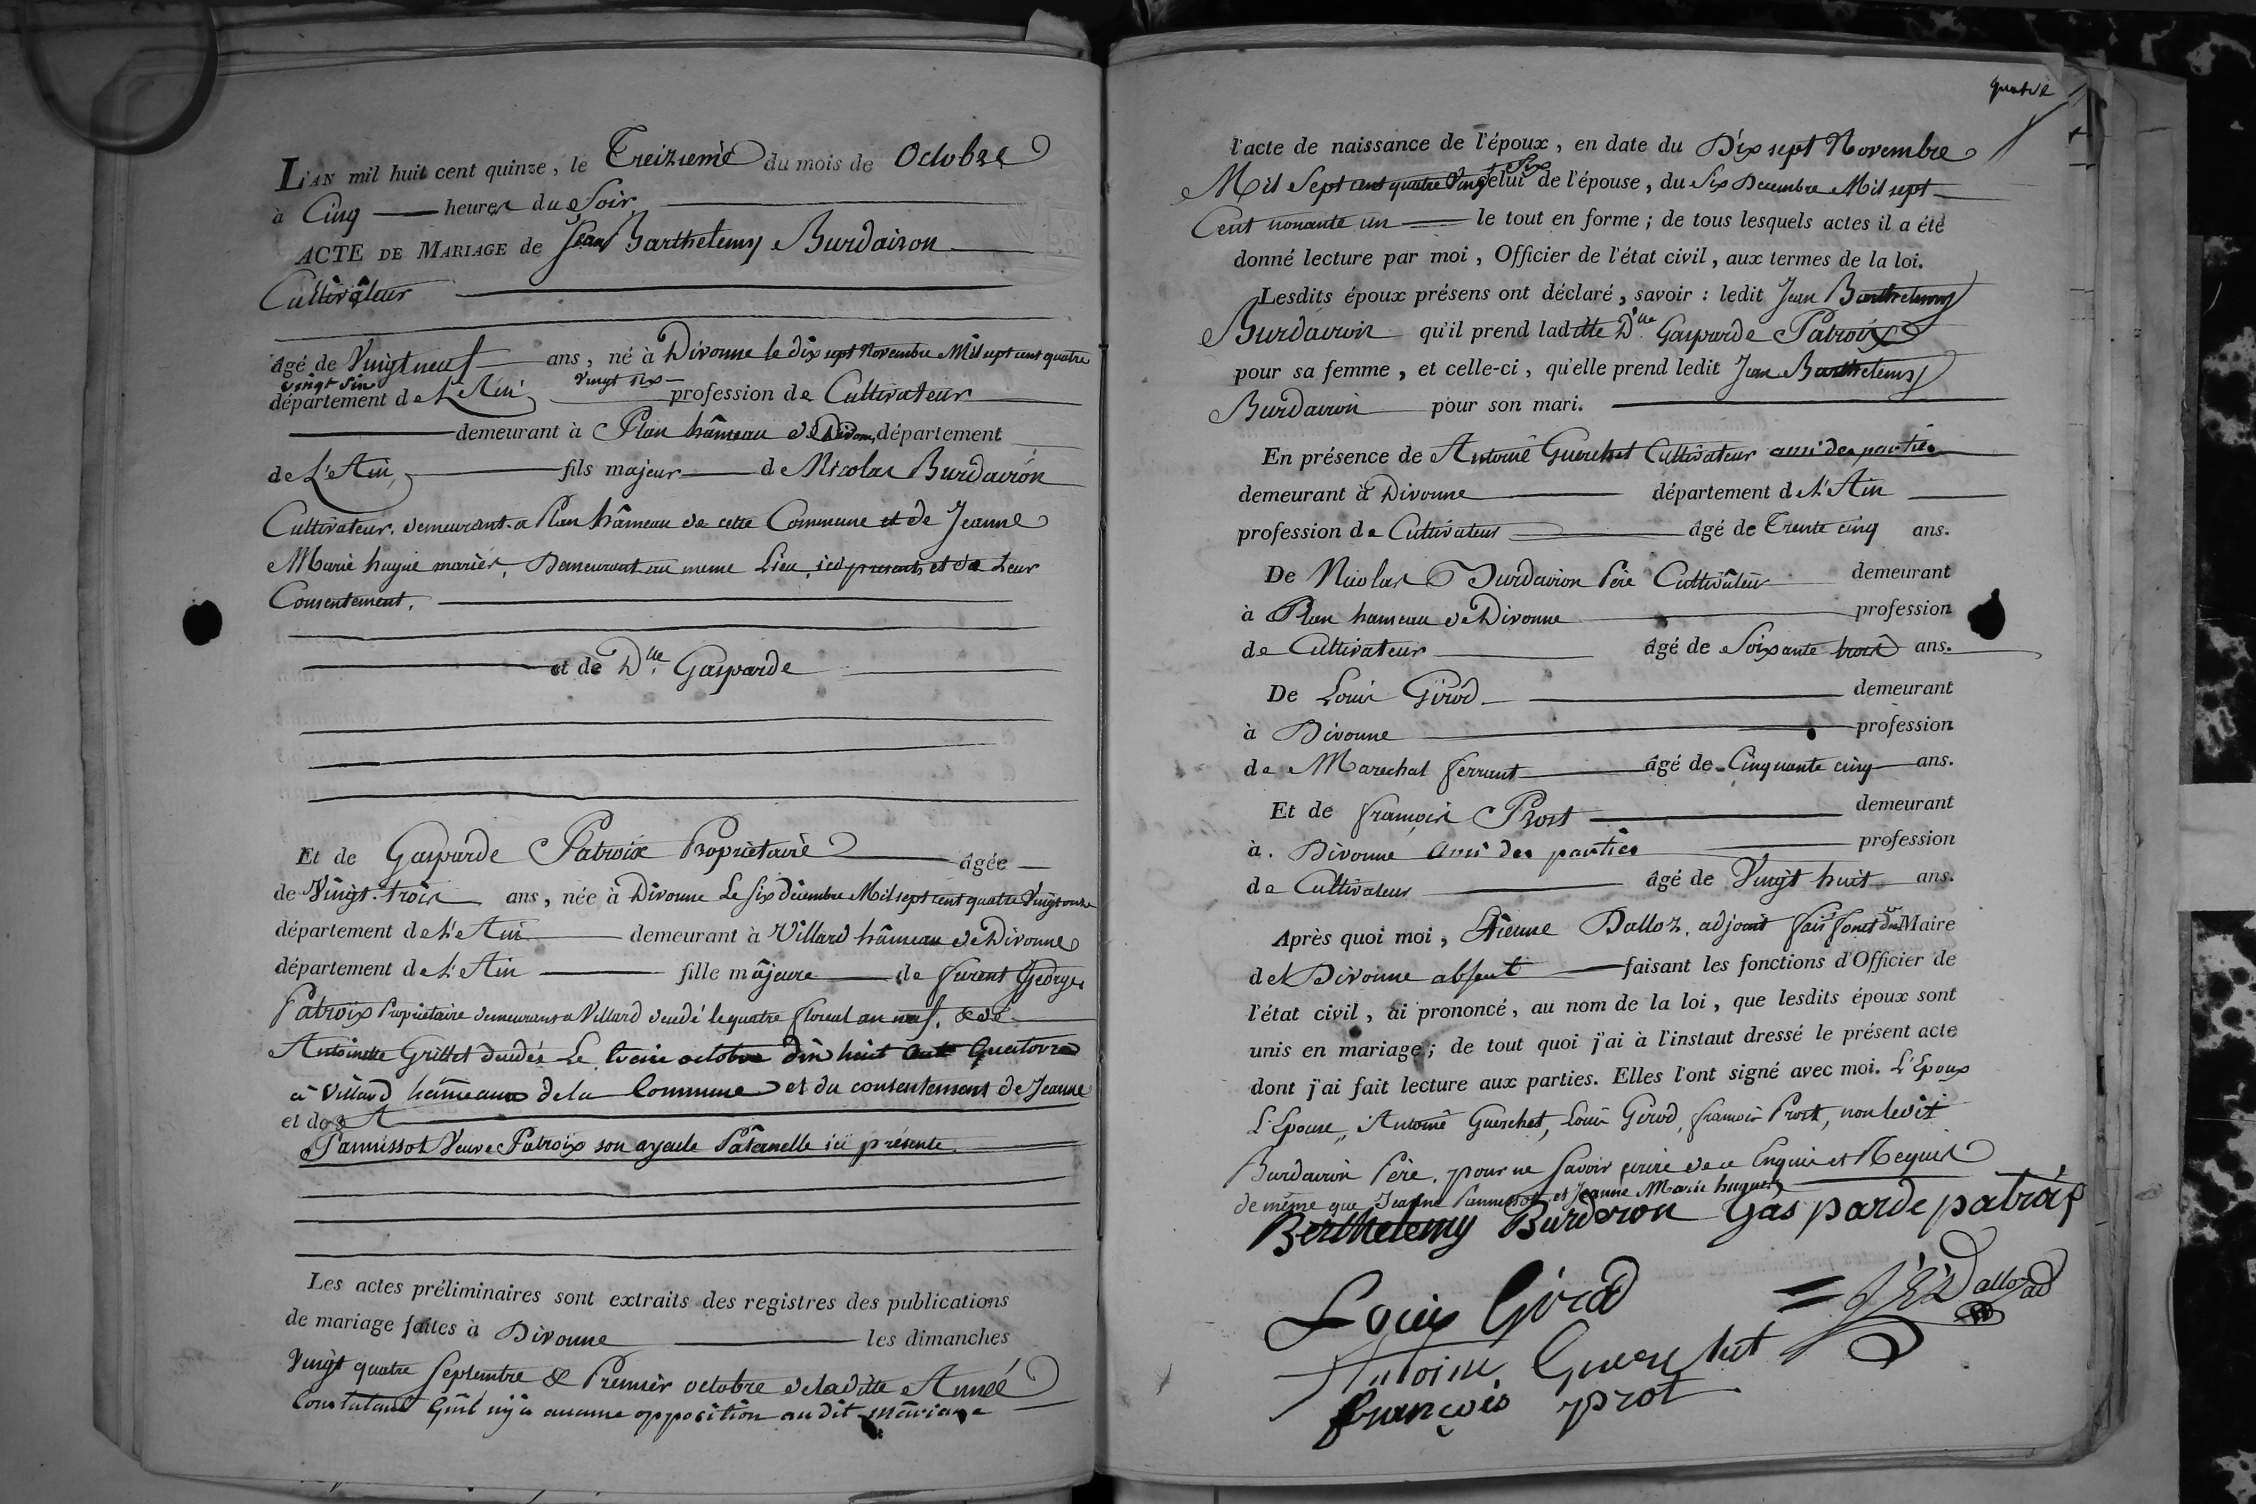 L'AN mil huit cent quinze, le Treizieme du mois de Octobre
à Cinq heures du Soir
ACTE DE MARIAGE de Jean Barthelemy Burdairon
Cultivâteur
âgé de Vingt neuf ans, né à Divonne le dix sept Novembre Mil sept cent quatre
vingt six vingt six
département de L'Ain profession de Cultivateur
demeurant à Plan hâmeau de Divonne, département
de L'Ain fils majeur de Nicolas Burdairon
Cultivateur, demeurant a Plan hâmeau de cette Commune et de Jeanne
Marie hugue mariés, Demeurant au meme Lieu, ici presents et de Leur
Consentement.
et de Dlle Gasparde
Et de Gasparde Patroix Propriétaire âgée
de Vingt-trois ans, née à Divonne Le Six décembre Mil sept cent quatre Vingt onze
département de L'Ain demeurant à Villard hâmeau de Divonne
département de L'Ain fille mâjeure de George
Patroix Propriétaire demeurant a Villard décédé le quatre floreal an neuf, & de
Antoinette Grillet décédés Le treize octobre dix huit cent Quatorze
à Villard hâmeau de la Commune et du consentement de Jeanne
et de
Pannissot Veuve Patroix son ayeule Paternelle ici présente
Les actes préliminaires sont extraits des registres des publications
de mariage faites à Divonne les dimanches
Vingt quatre Septembre & Premier octobre de la ditte Année
Constatant Qu'il n'y a aucune opposition au dit mâriage
quatre
l'acte de naissance de l'époux, en date du Dix sept Novembre
Mil Sept cent quatre Vingt Six celui de l'épouse, du Six Decembre Mil sept
Cent nonante un le tout en forme; de tous lesquels actes il a été
donné lecture par moi, Officier de l'état civil, aux termes de la loi.
Lesdits époux présens ont déclaré, savoir: ledit Jean Barthelemy
Burdairon qu'il prend laditte Dlle Gasparde Patroix
pour sa femme, et celle-ci, qu'elle prend ledit Jean Barthelemy
Burdairon pour son mari.
En présence de Antoine Guerchet Cultivateur ami des parties
demeurant à Divonne département de L'Ain
profession de Cultivateur âgé de Trente cinq ans.
De Nicolas Burdairon Père Cultivâteur demeurant
à Plan hameau de Divonne profession
de Cultivateur âgé de Soixante trois ans.
De Louis Girod demeurant
à Divonne profession
de Marechal ferrant âgé de Cinquante cinq ans.
Et de françois Prost demeurant
à Divonne Ami des parties profession
de Cultivateur âgé de Vingt huit ans.
Après quoi moi, Etienne Dalloz, adjoint Maire
de Divonne absent faisant les fonctions d'Officier de
l'état civil, ai prononcé, au nom de la loi, que lesdits époux sont
unis en mariage; de tout quoi j'ai à l'instaut dressé le présent acte
dont j'ai fait lecture aux parties. Elles l'ont signé avec moi. L'Epoux
L'Epouse, Antoine Guerchet, Louis Girod, françois Prost, non ledit
Burdairon Père, pour ne Savoir écrire de ce Enquis et Requis
de même que Jeanne Pannissot et Jeanne Marie hugue
Berthelemy Burderon Gasparde patroix
Louis Girod
Dalloz ad
Antoine Guerchet
françois prot